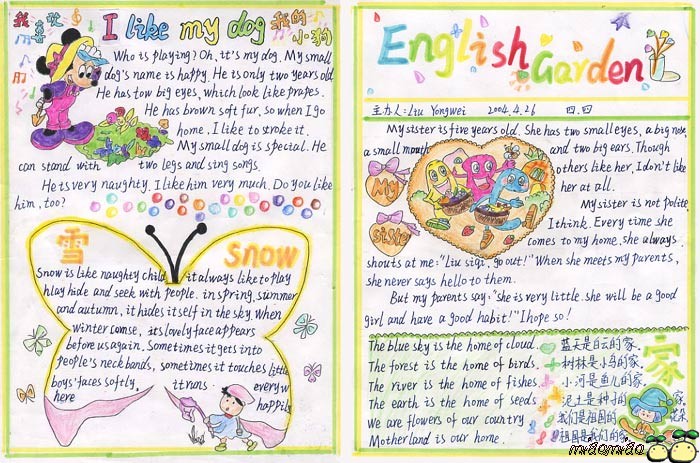 我喜欢 I like my dog 我的小狗
Who is playing? Oh, it's my dog. My small
dog's name is happy. He is only two years old.
He has tow big eyes, which look like prapes.
He has brown soft fur, so when I go
home, I like to stroke it.
My small dog is special. He
can stand with two legs and sing songs.
He is very naughty. I like him very much. Do you like
him, too?
雪 snow
Snow is like naughty child it always like to play
hlay hide and seek with people. in spring, summer
and autumn, it hides itself in the sky. When
winter comse, its lovely face appears
before us again. Sometimes it gets into
people's neck bands, sometimes it touches little
boys' faces softly, it runs everyw
here happily
English Garden
主办人: Liu Yongwei 2004.4.26 四.四
My sister is five years old. She has two small eyes, a big nose,
a small mouth and two big ears. Though
others like her, I don't like
her at all.
My Sister
My sister is not polite,
I think. Every time she
comes to my home, she always
shouts at me: "Liu siqi, go out!" When she meets my parents,
she never says hello to them.
But my parents say: "she is very little. she will be a good
girl and have a good habit!" I hope so!
家
The blue sky is the home of cloud. 蓝天是白云的家.
The forest is the home of birds. 树林是小鸟的家.
The river is the home of fishes 小河是鱼儿的家.
The earth is the home of seeds 泥土是种子的家.
We are flowers of our country 我们是祖国的花朵
Motherland is our home. 祖国是我们的家.
miáomiáo